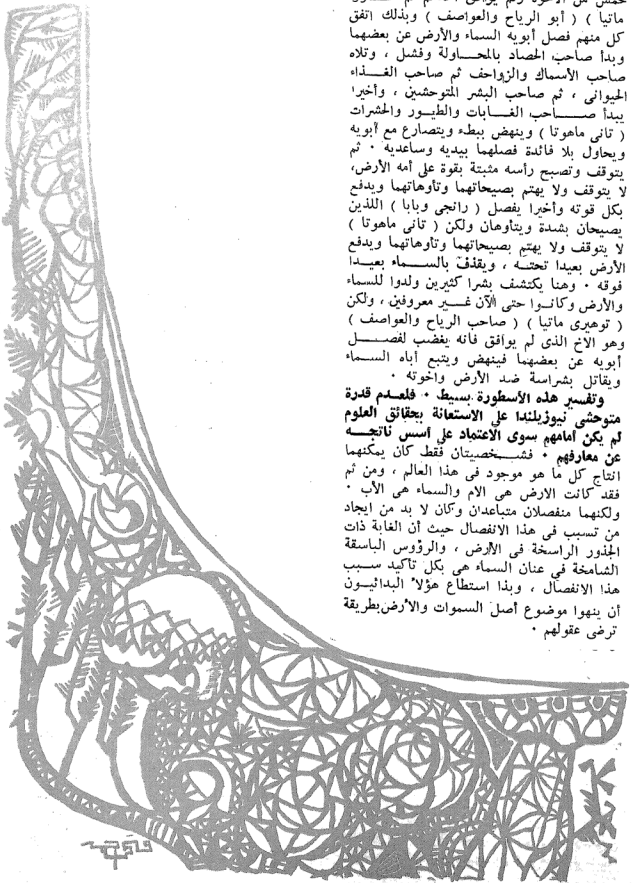 ماتيا ) ( أبو الرياح والعواصف ) وبذلك اتفق
كل منهم فصل أبويه السماء والأرض عن بعضهما
وبدأ صاحب الحصاد بالمحاولة وفشل ، وتلاه
صاحب الأسماك والزواحف ثم صاحب الغذاء
الحيوانى ، ثم صاحب البشر المتوحشين ، وأخيرا
يبدأ صاحب الغابات والطيور والحشرات
( تانى ماهوتا ) وينهض ببطء ويتصارع مع أبويه
ويحاول بلا فائدة فصلهما بيديه وساعديه · ثم
يتوقف وتصبح رأسه مثبتة بقوة على أمه الأرض،
لا يتوقف ولا يهتم بصيحاتهما وتأوهاتهما ويدفع
بكل قوته وأخيرا يفصل ( رانجى وبابا ) اللذين
يصيحان بشدة ويتأوهان ولكن ( تانى ماهوتا )
لا يتوقف ولا يهتم بصيحاتهما وتأوهاتهما ويدفع
الأرض بعيدا تحته ، ويقذف بالسماء بعيدا
فوقه · وهنا يكتشف بشرا كثيرين ولدوا للسماء
والأرض وكانوا حتى الآن غير معروفين ، ولكن
( توهيرى ماتيا ) ( صاحب الرياح والعواصف )
وهو الاخ الذى لم يوافق فأنه يغضب لفصل
أبويه عن بعضهما فينهض ويتبع أباه السماء
ويقاتل بشراسة ضد الأرض واخوته ·
وتفسير هذه الأسطورة بسيط · فلعدم قدرة
متوحشى نيوزيلندا على الاستعانة بحقائق العلوم
لم يكن أمامهم سوى الاعتماد على أسس ناتجه
عن معارفهم · فشخصيتان فقط كان يمكنهما
انتاج كل ما هو موجود فى هذا العالم ، ومن ثم
فقد كانت الارض هى الام والسماء هى الأب ·
ولكنهما منفصلان متباعدان وكان لا بد من ايجاد
من تسبب فى هذا الانفصال حيث أن الغابة ذات
الجذور الراسخة فى الأرض ، والرؤوس الباسقة
الشامخة فى عنان السماء هى بكل تأكيد سبب
هذا الانفصال ، وبذا استطاع هؤلاء البدائيون
أن ينهوا موضوع أصل السموات والأرض بطريقة
ترضى عقولهم ·